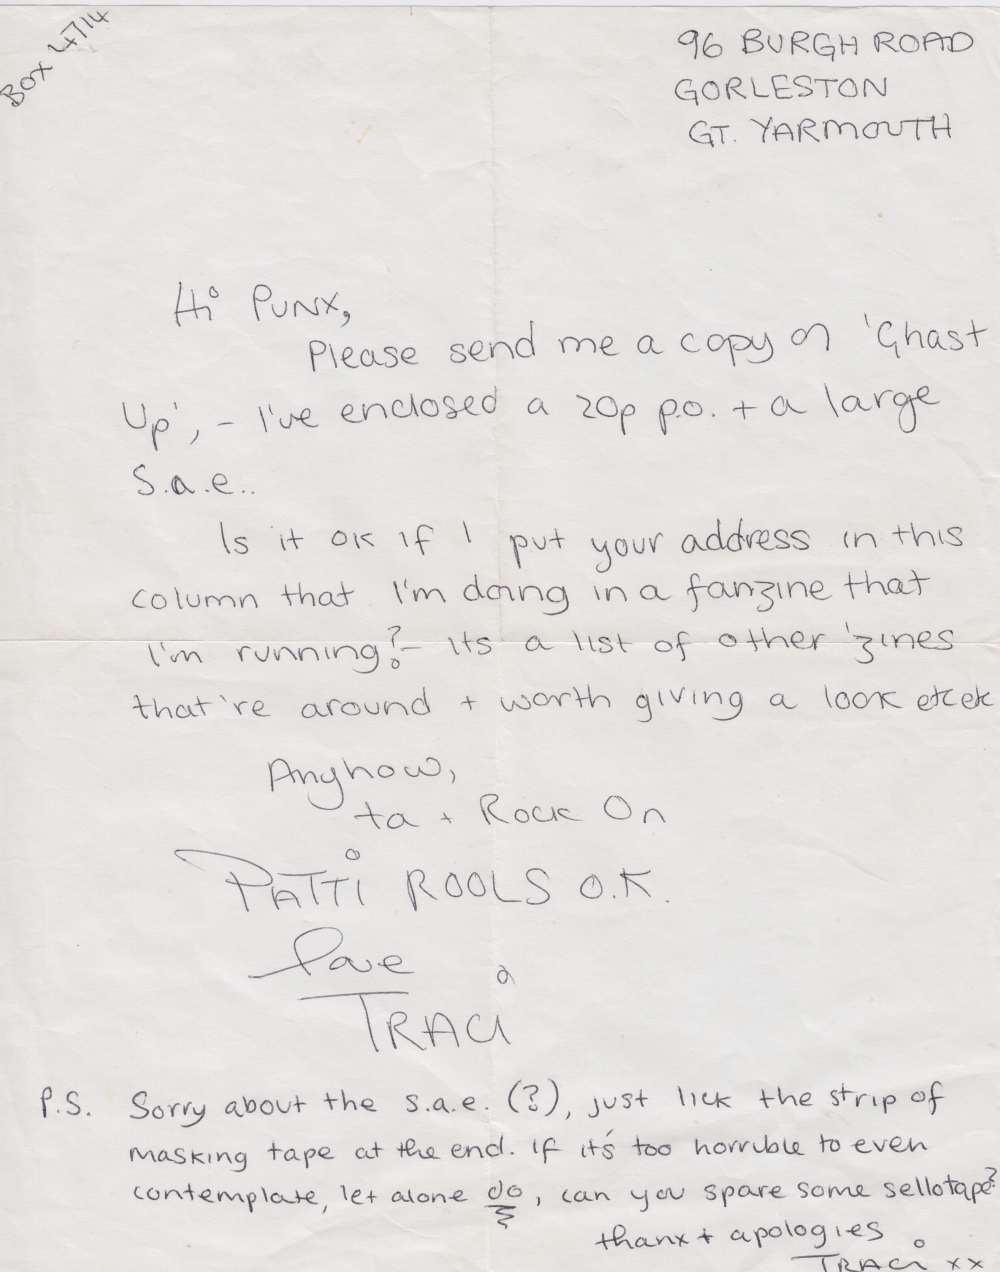 Box 4714
96 BURGH ROAD
GORLESTON
GT. YARMOUTH
Hi PUNX,
Please send me a copy of 'Ghast
Up', - I've enclosed a 20p p.o. + a large
S.a.e..
Is it OK if I put your address in this
column that I'm doing in a fanzine that
I'm running? - its a list of other 'zines
that're around + worth giving a look etc etc
Anyhow,
ta + Rock On
PATTi ROOLS O.K.
Love
TRACi
P.S. Sorry about the s.a.e. (?), just lick the strip of
masking tape at the end. If it's too horrible to even
contemplate, let alone do, can you spare some sellotape?
thanx + apologies
TRACi xx